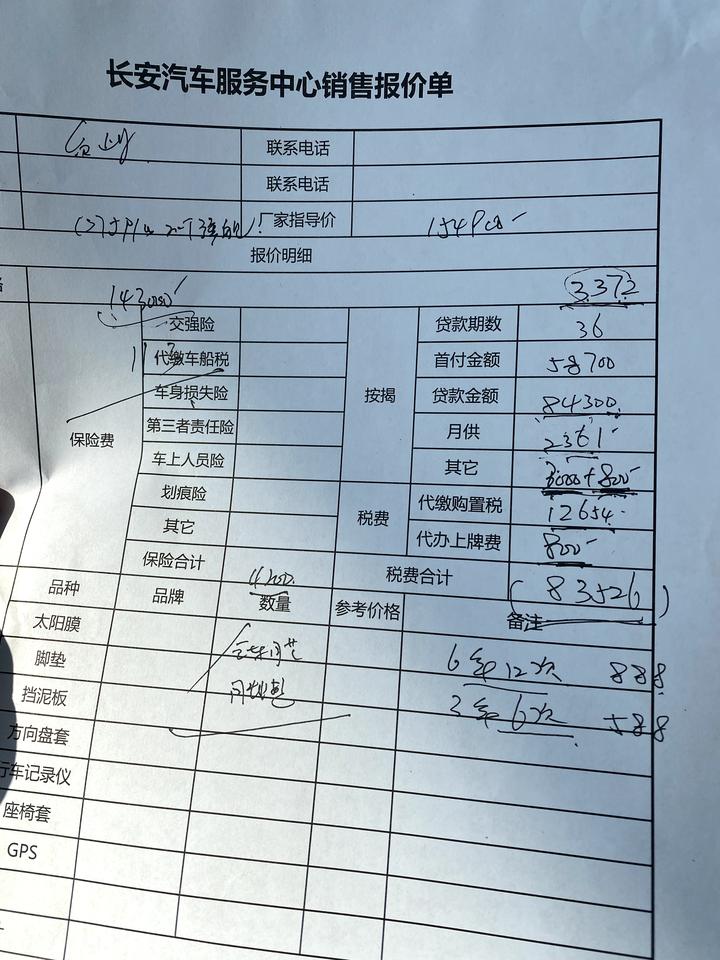 长安汽车服务中心销售报价单
联系电话
联系电话
厂家指导价 154900
报价明细
143000 3.372
交强险 贷款期数 36
代缴车船税 首付金额 58700
车身损失险 按揭 贷款金额 84300
保险费 第三者责任险 月供 2361
车上人员险 其它 3000+800
划痕险 税费 代缴购置税 12654
其它 代办上牌费 800
保险合计 4200 税费合计 (83526)
品种 品牌 数量 参考价格 备注
太阳膜
脚垫 6年12次 888
挡泥板 3年6次 588
方向盘套
行车记录仪
座椅套
GPS